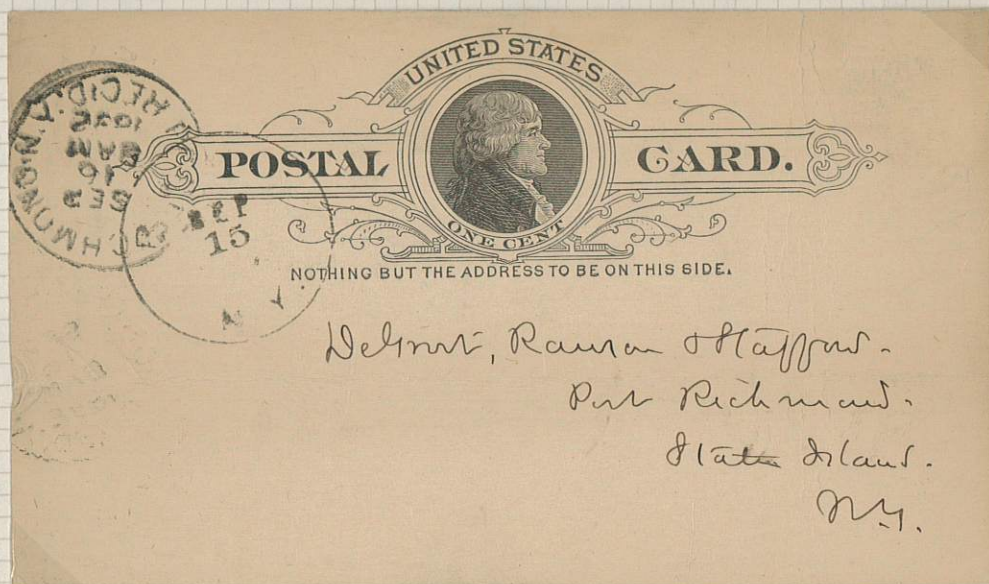 UNITED STATES
POSTAL CARD.
ONE CENT
NOTHING BUT THE ADDRESS TO BE ON THIS SIDE.
RICHMOND, N.Y. REC'D.
SEP
16
8 AM
1885
SEP
15
N Y.
DeGroot, Rawson & Stafford.
Port Richmond.
Staten Island.
N.Y.